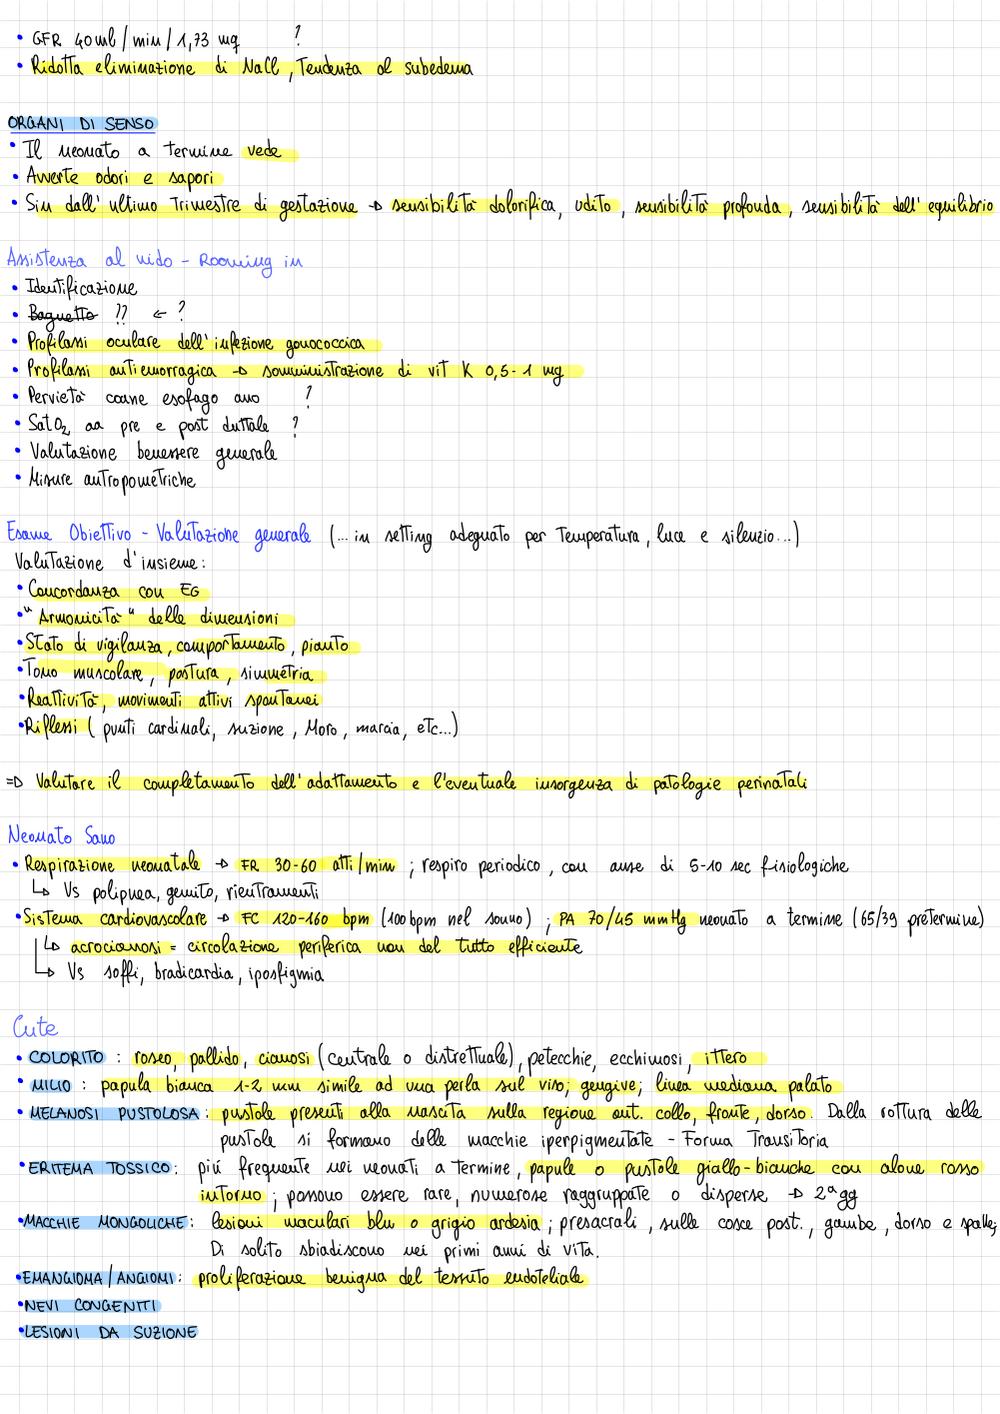 • GFR 40 ml/min/1,73 mq ?
• Ridotta eliminazione di NaCl, Tendenza al subedema
ORGANI DI SENSO
• Il neonato a termine vede
• Avverte odori e sapori
• Sin dall'ultimo Trimestre di gestazione → sensibilità dolorifica, udito, sensibilità profonda, sensibilità dell'equilibrio
Assistenza al nido - Rooming in
• Identificazione
• Bagnetto ?? ← ?
• Profilassi oculare dell'infezione gonococcica
• Profilassi antiemorragica → somministrazione di vit K 0,5-1 mg
• Pervietà coane esofago ano ?
• SatO2 aa pre e post duttale ?
• Valutazione benessere generale
• Misure antropometriche
Esame Obiettivo - Valutazione generale (... in setting adeguato per Temperatura, luce e silenzio...)
Valutazione d'insieme:
• Concordanza con EG
• "Armonicità" delle dimensioni
• Stato di vigilanza, comportamento, pianto
• Tono muscolare, postura, simmetria
• Reattività, movimenti attivi spontanei
• Riflessi ( punti cardinali, suzione, Moro, marcia, etc...)
⇒ Valutare il completamento dell'adattamento e l'eventuale insorgenza di patologie perinatali
Neonato Sano
• Respirazione neonatale → FR 30-60 atti/min ; respiro periodico, con ause di 5-10 sec fisiologiche
↳ Vs polipnea, gemito, rientramenti
• Sistema cardiovascolare → FC 120-160 bpm (100bpm nel sonno) ; PA 70/45 mmHg neonato a termine (65/39 pretermine)
↳ acrocianosi = circolazione periferica non del tutto efficiente
↳ Vs soffi, bradicardia, iposfigmia
Cute
• COLORITO : roseo, pallido, cianosi (centrale o distrettuale), petecchie, ecchimosi, ittero
• MILIO : papula bianca 1-2 mm simile ad una perla sul viso; gengive; linea mediana palato
• MELANOSI PUSTOLOSA : pustole presenti alla nascita sulla regione ant. collo, fronte, dorso. Dalla rottura delle
pustole si formano delle macchie iperpigmentate - Forma Transitoria
• ERITEMA TOSSICO : più frequente nei neonati a termine, papule o pustole giallo-bianche con alone rosso
intorno ; possono essere rare, numerose raggruppate o disperse → 2ª gg
• MACCHIE MONGOLICHE : lesioni maculari blu o grigio ardesia ; presacrali, sulle cosce post., gambe, dorso e spalle;
Di solito sbiadiscono nei primi anni di vita.
• EMANGIOMA/ANGIOMI : proliferazione benigna del tessuto endoteliale
• NEVI CONGENITI
• LESIONI DA SUZIONE